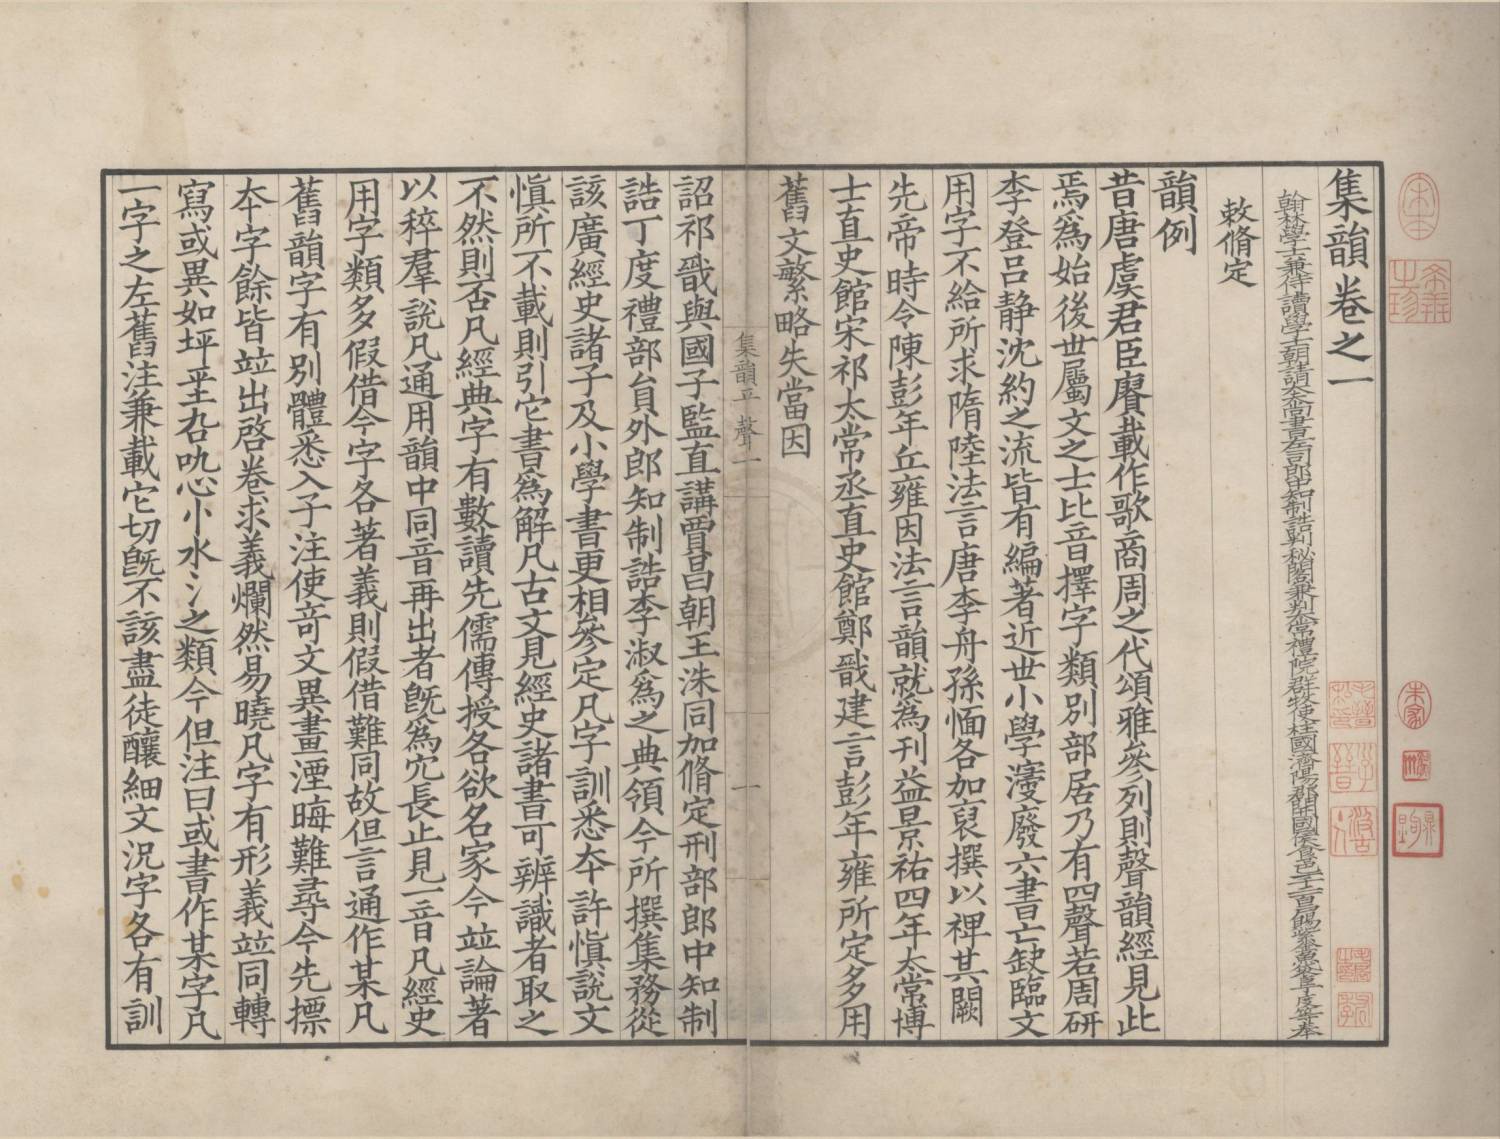 集韻卷之一
翰林學士兼侍讀學士朝請大夫尚書左司郎中知制誥判秘閣兼判太常禮院群牧使柱國濟陽郡開國侯食邑一千二百戶賜紫金魚袋臣丁度等奉
敕脩定
韻例
昔唐虞君臣賡載作歌商周之代頌雅參列則聲韻經見此
焉爲始後世屬文之士比音擇字類別部居乃有四聲若周研
李登呂静沈約之流皆有編著近世小學寖廢六書亡缺臨文
用字不給所求隋陸法言唐李舟孫愐各加裒撰以裨其闕
先帝時令陳彭年丘雍因法言韻就爲刊益景祐四年太常博
士直史館宋祁太常丞直史館鄭戩建言彭年雍所定多用
舊文繁略失當因
集韻平聲一
一
詔祁戩與國子監直講賈昌朝王洙同加脩定刑部郎中知制
誥丁度禮部員外郎知制誥李淑爲之典領今所撰集務從
該廣經史諸子及小學書更相參定凡字訓悉夲許慎說文
慎所不載則引它書爲解凡古文見經史諸書可辨識者取之
不然則否凡經典字有數讀先儒傳授各欲名家今竝論著
以稡羣說凡通用韻中同音再出者旣爲宂長止見一音凡經史
用字類多假借今字各著義則假借難同故但言通作某凡
舊韻字有別體悉入子注使奇文異畫湮晦難尋今先摽
夲字餘皆竝出啓卷求義爛然易曉凡字有形義竝同轉
寫或異如坪𡊣叴叴心忄水氵之類今但注曰或書作某字凡
一字之左舊注兼載它切旣不該盡徒釀細文況字各有訓